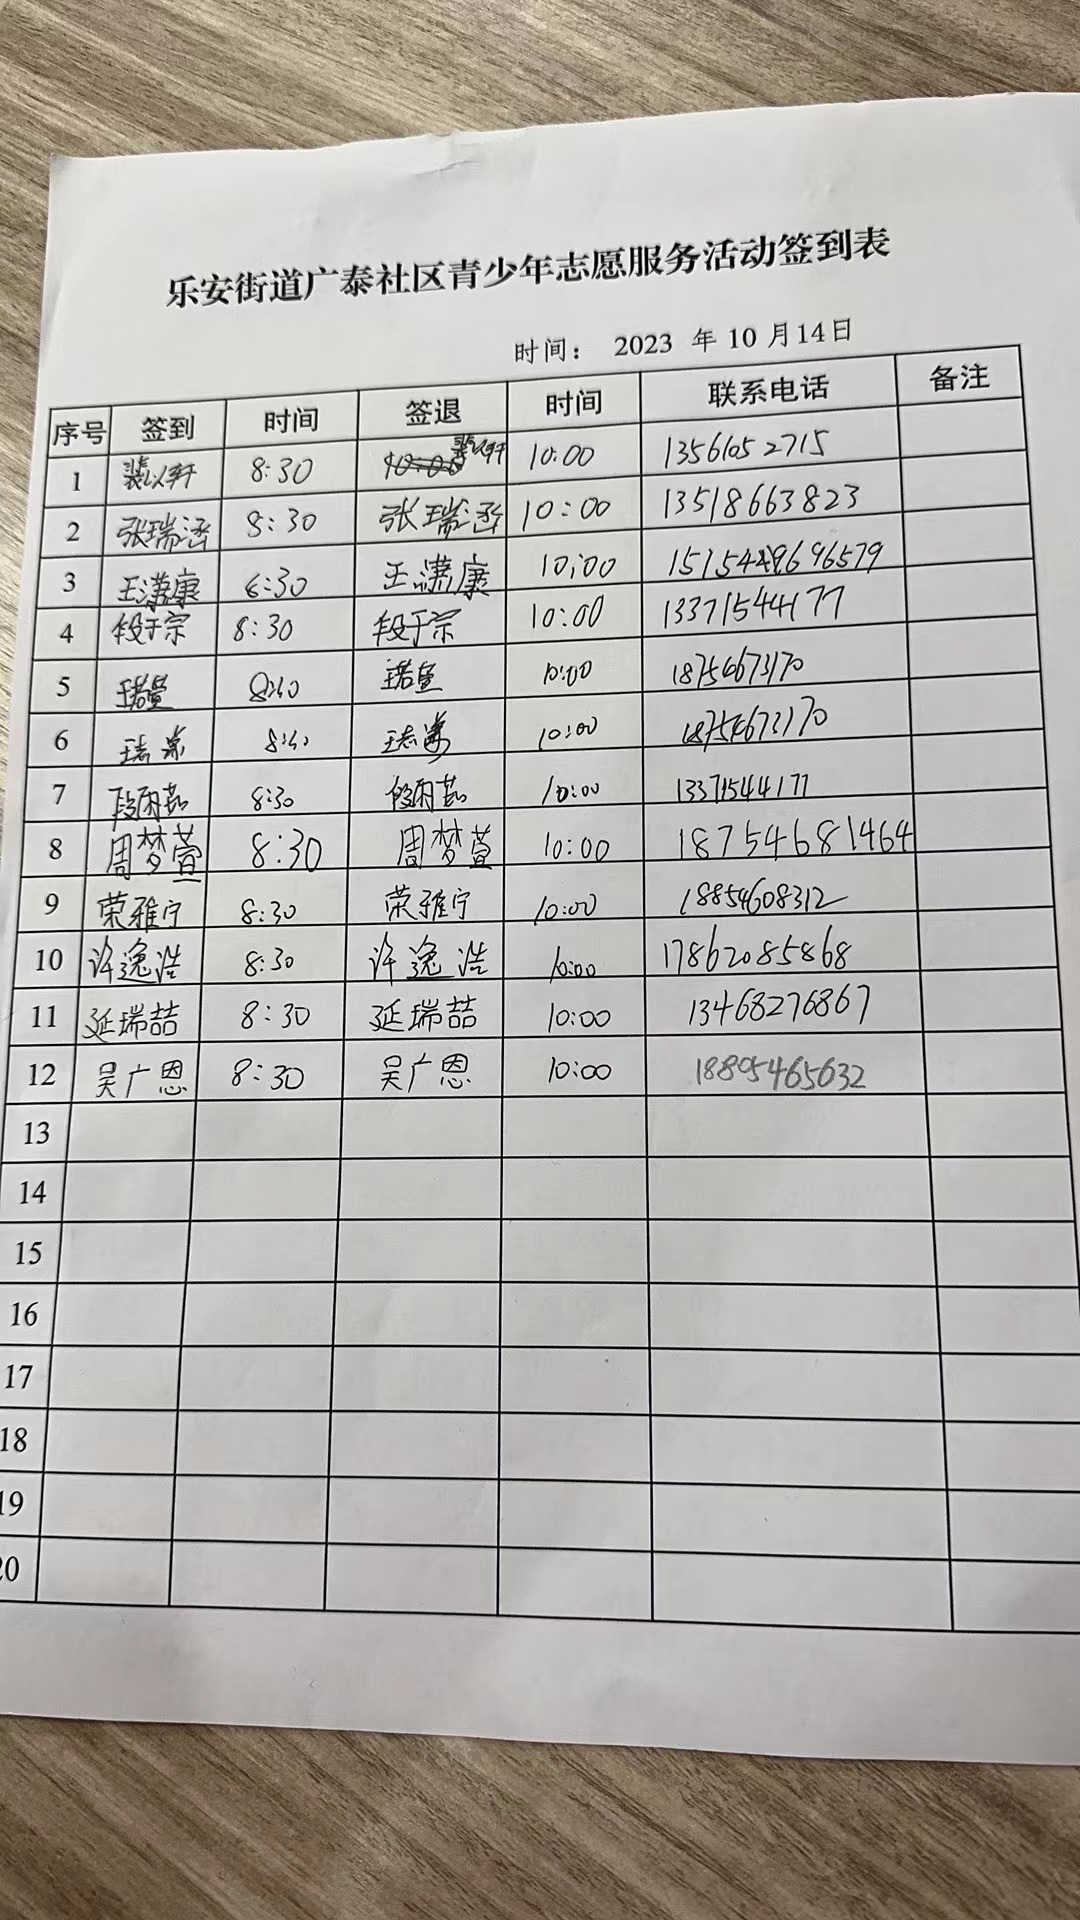 乐安街道广泰社区青少年志愿服务活动签到表
时间： 2023 年 10 月 14 日
序号 签到 时间 签退 时间 联系电话 备注
1 裴以轩 8:30 裴以轩 10:00 1356105 2715
2 张瑞涵 8:30 张瑞涵 10:00 13518663823
3 王潇康 8:30 王潇康 10:00
4 段于宗 8:30 段于宗 10:00 13371544177
5 王诺萱 8:40 王诺萱 10:00 18754673170
6 8:40 10:00 18754673170
7 段雨茹 8:30 段雨茹 10:00 13371544177
8 周梦萱 8:30 周梦萱 10:00 18754681464
9 荣雅宁 8:30 荣雅宁 10:00 18854608312
10 许逸浩 8:30 许逸浩 10:00 17862085868
11 延瑞喆 8:30 延瑞喆 10:00 13468276867
12 吴广恩 8:30 吴广恩 10:00 18805465632
13
14
15
16
17
18
19
20